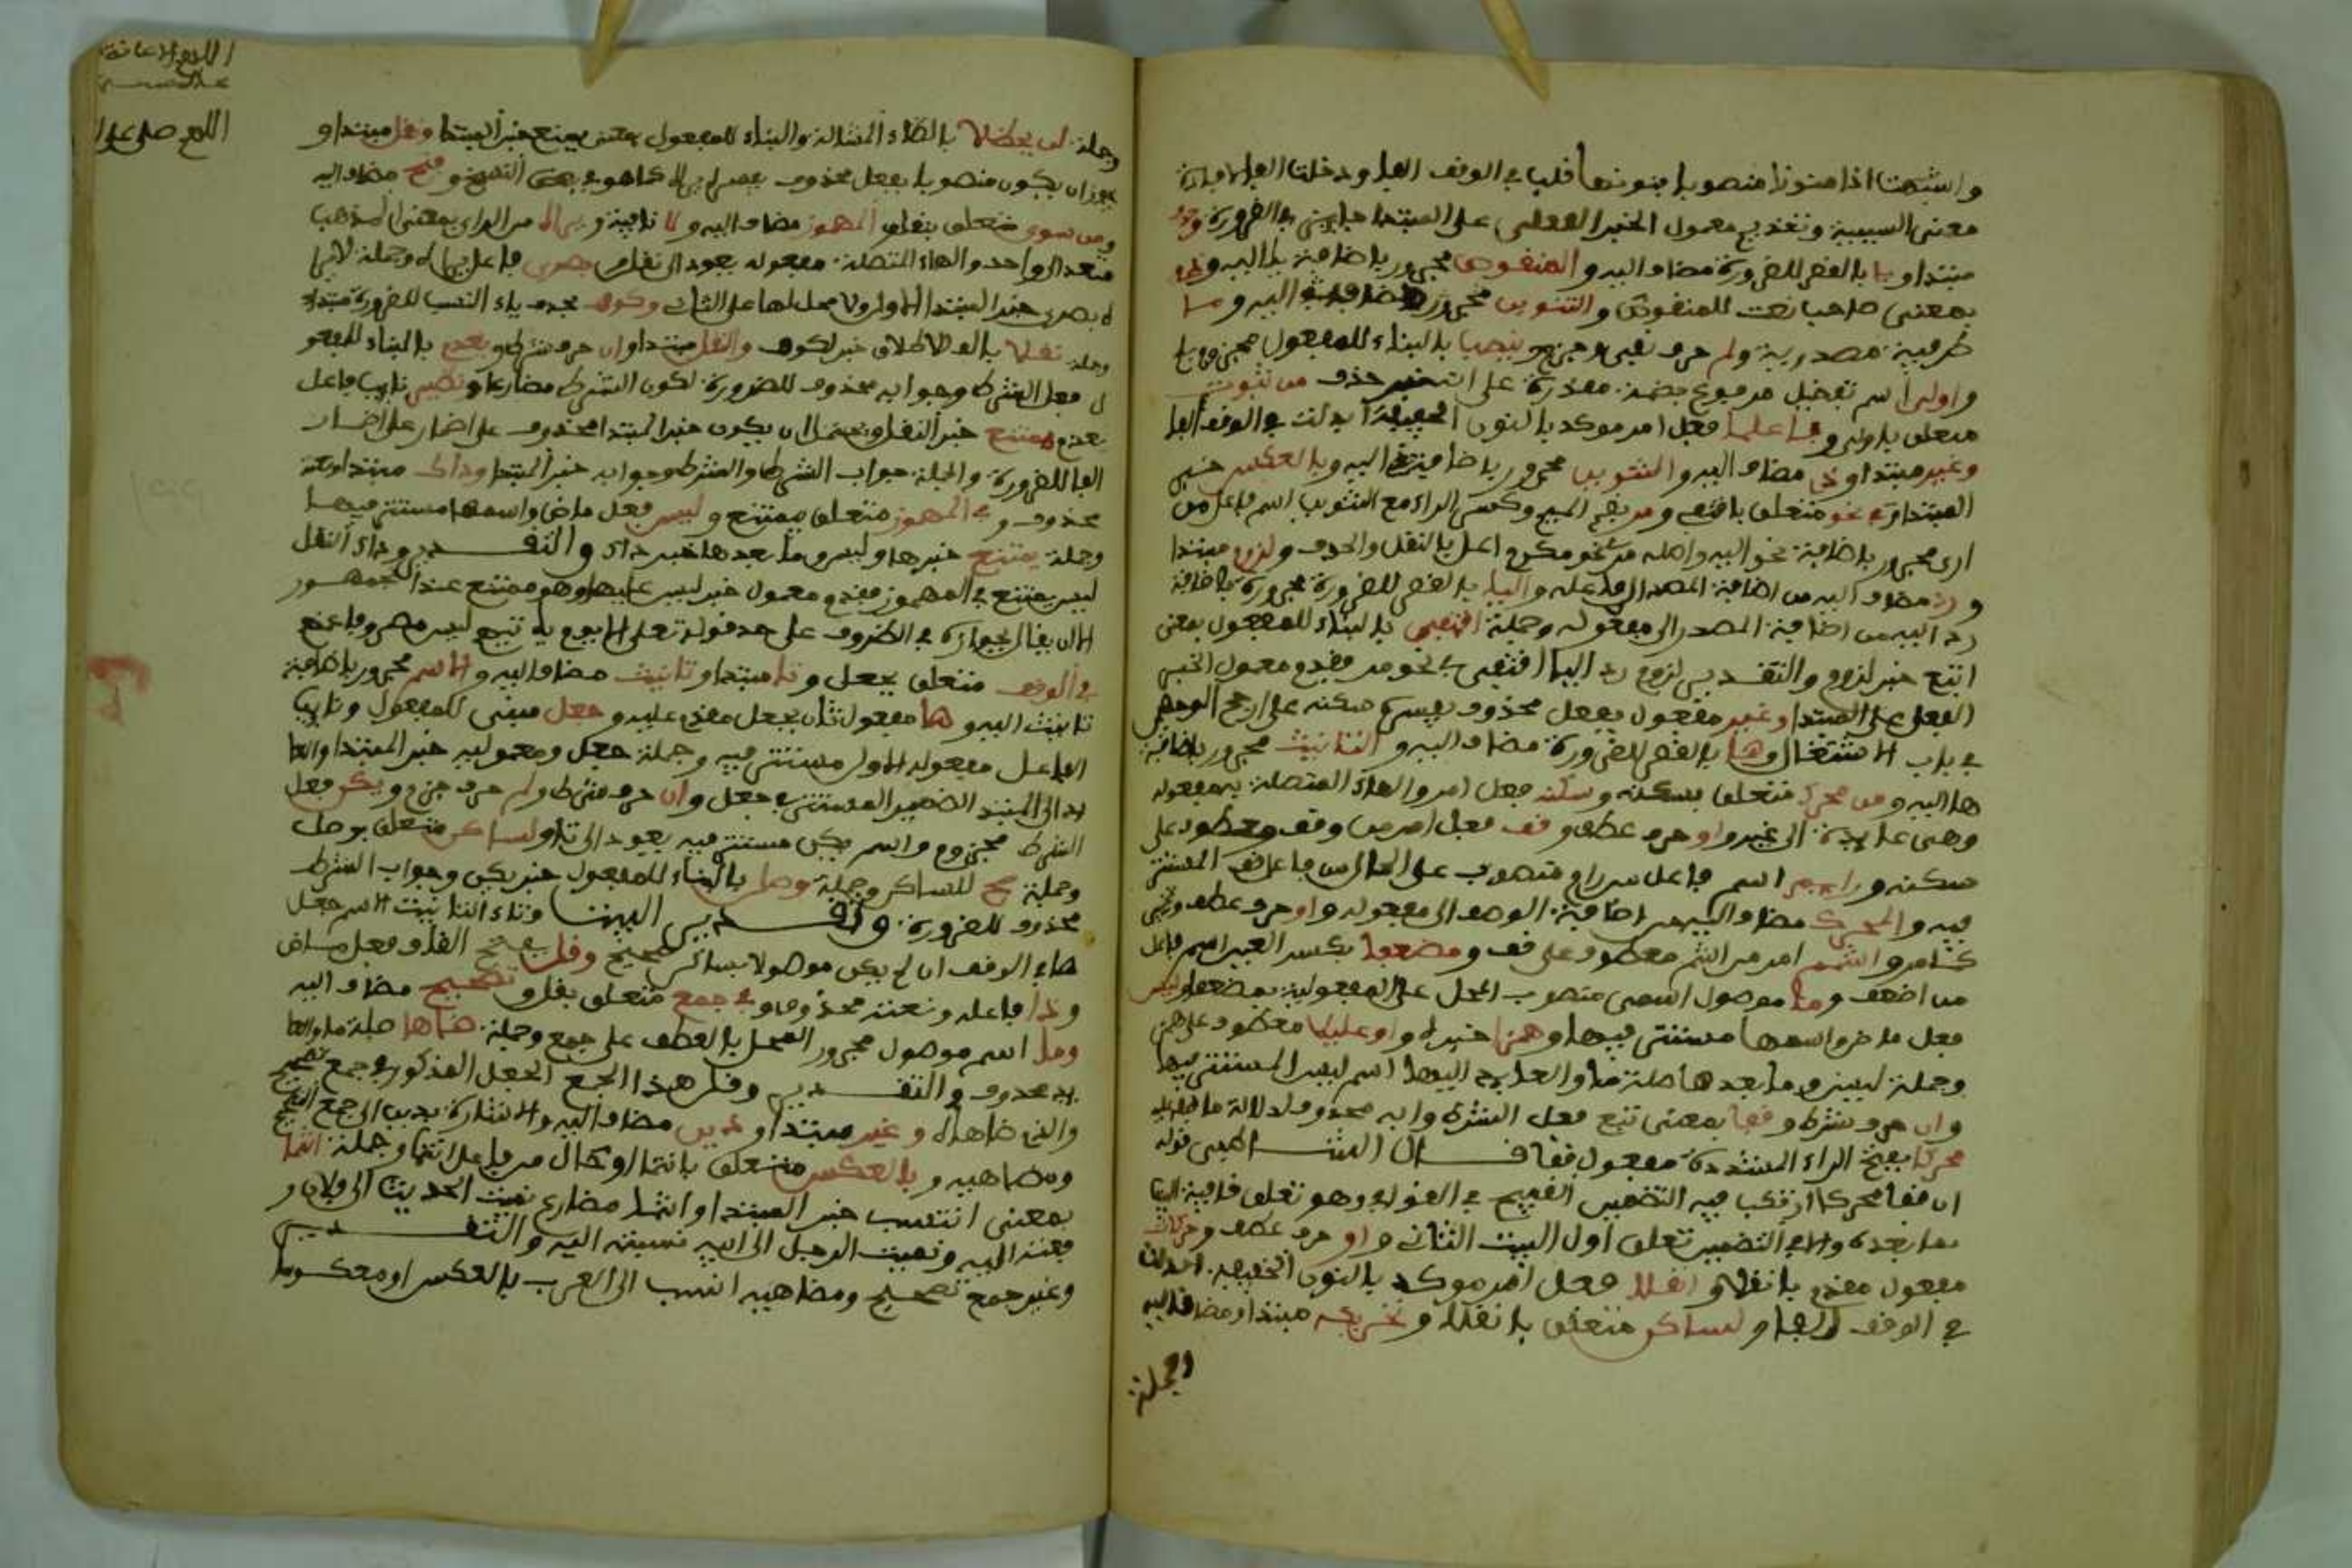 واشبهت اذا منونا منصوبا بنونها قلب في الوقف الفا ودخلت الفا لافادة
معنى السببية وتقديم معمول الخبر الفعلي على المبتدا جايز في الضرورة وحذف
مبتدا ويا بالقصر للضرورة مضاف اليه والمنقوص مجرور باضافة يا اليه وذي
بمعنى صاحب نعت للمنقوص والتنوين مجرور باضافة ذي اليه وما
ظرفية مصدرية ولم حرف نفي وجزم وينصب بالبناء للمفعول مجزوم بلم
واولى اسم تفضيل مرفوع بضمة مقدرة على انه خبر حذف من ثبوت
متعلق باولى وفاعلما فعل امر موكد بالنون الخفيفة ابدلت في الوقف الفا
وغير مبتدا وذي مضاف اليه والتنوين مجرور باضافة ذي اليه وبالعكس خبر
المبتدا وفي نحو متعلق باقتفي ومر بضم الميم وكسر الراء مع التنوين اسم فاعل من
ارى مجرور باضافة نحو اليه واصله مرءي نحو مكرم اعل بالنقل والحذف ولزوم مبتدا
ورد مضاف اليه من اضافة المصدر الى فاعله واليا بالقصر للضرورة مجرورة باضافة
رد اليه من اضافة المصدر الى مفعوله وجملة اقتفي بالبناء للمفعول بمعنى
اتبع خبر لزوم والتقدير لزوم رد اليا اقتفي في نحو مر فقدم معمول الخبر
الفعل على المبتدا وغير مفعول بفعل محذوف يفسره سكنه على ارجح الوجهين
في باب الاشتغال وها بالقصر للضرورة مضاف اليه والتانيث مجرور باضافة
ها اليه ومن محرك متعلق بسكنه وسكنه فعل امر والهاء المتصلة به مفعوله
وهي عايدة الى غير واو حرف عطف وقف فعل امر من وقف ومعطوف على
سكنه ورايم اسم فاعل من رام منصوب على الحال من فاعل قف المستتر
فيه والمحرك مضاف اليه من اضافة الوصف الى مفعوله واو حرف عطف وتخيير
كذا مر واشمم امر من اشم معطوف على قف ومضعفا بكسر العين اسم فاعل
من اضعف وما موصول اسمي منصوب المحل على المفعولية بمضعفا وليس
فعل ماض واسمها مستتر فيها وهمزا خبرها واو عليلا معطوف على همزا
وجملة ليس وما بعدها صلة ما والعايد اليها اسم ليس المستتر فيها
وان حرف شرط وقفا بمعنى تبع فعل الشرط وجوابه محذوف لدلالة ما قبله عليه
محركا بفتح الراء المشددة مفعول قفا قال الشاطبي قوله
ان قفا محركا ارتكب فيه التضمين القبيح في القوافي وهو تعلق قافية البيت
بما بعده والتضمين تعلق اول البيت الثاني واو حرف عطف وحركات
مفعول مقدم بانقلا وانقلا فعل امر موكد بالنون الخفيفة ابدلت
في الوقف الفا ولساكن متعلق بانقلا وتحريكه مبتدا ومضاف اليه
وجملة
وجملة لن يحظلا بالظاء المشالة والبناء للمفعول بمعنى يمنع خبر المبتدا ونقل مبتدا و
يجوز ان يكون منصوبا بفعل محذوف يفسره لا يراه كما هو في بعض النسخ وفتح مضاف اليه
ومن سوى متعلق بنقل والمهموز مضاف اليه ولا نافية ويراه من الراي بمعنى المذهب
متعد الى واحد والهاء المتصلة مفعوله يعود الى نقل وبصري فاعل يراه وجملة لا يرا
ه بصري خبر المبتدا الاول ولا محل لها على الثاني وكوف بحذف ياء النسب للضرورة مبتدا
وجملة نقلا بالف الاطلاق خبر كوف والنقل مبتدا وان حرف شرط ويعدم بالبناء للمفعو
ل فعل الشرط وجوابه محذوف للضرورة لكون الشرط مضارعا ونظير نايب فاعل
يعدم وممتنع خبر النقل ويحتمل ان يكون خبر المبتدا محذوف على اضمار على اضمار
الفا للضرورة والجملة جواب الشرط والشرط وجوابه خبر المبتدا وذاك مبتدا ونعته
محذوف وفي المهموز متعلق بيمتنع وليس فعل ماض واسمها مستتر فيها
وجملة يمتنع خبرها وليس وما بعدها خبر ذاك والتقدير وذاك النقل
ليس يمتنع في المهموز فقدم معمول خبر ليس عليها وهو ممتنع عند الجمهور
الا ان يقال بجوازه في الظروف على حد قوله تعالى الا يوم ياتيهم ليس مصروفا عنهم
في الوقف متعلق بجعل وتا مبتدا وتانيث مضاف اليه والاسم مجرور باضافة
تانيث اليه وها مفعول ثان بجعل مقدم عليه وجعل مبني للمفعول ونايب
الفاعل مفعوله الاول مستتر فيه وجملة جعل ومعموليه خبر المبتدا والعا
يد الى المبتدا الضمير المستتر في جعل وان حرف شرط ولم حرف جزم ويكن فعل
الشرط مجزوم واسم يكن مستتر فيه يعود الى تا ولساكن متعلق بوصل
وجملة صح للساكن وجملة وصل بالبناء للمفعول خبر يكن وجواب الشرط
محذوف للضرورة وتقدير البيت وتاء التانيث الاسم جعل
هاء في الوقف ان لم يكن موصولا بساكن صحيح وقل بفتح القاف فعل ماض
وذا فاعله ونعته محذوف وفي جمع متعلق بقل وتصحيح مضاف اليه
وما اسم موصول مجرور المحل بالعطف على جمع وجملة ضاها صلة ما والعا
يد محذوف والتقدير وقل هذا الجعل المذكور في جمع تصحيح
والذي ضاهاه وغير مبتدا وذين مضاف اليه والاشارة بذين الى جمع التصحيح
ومضاهيه وبالعكس متعلق بانتما او حال من فاعل انتما وجملة انتما
بمعنى انتسب خبر المبتدا وانتما مضارع نميت الحديث الى فلان و
فعته اليه ونميت الرجل الى ابيه نسبته اليه والتقدير
وغير جمع تصحيح ومضاهيه انتسب الى العرب بالعكس او معكوسا
اللهم صل على